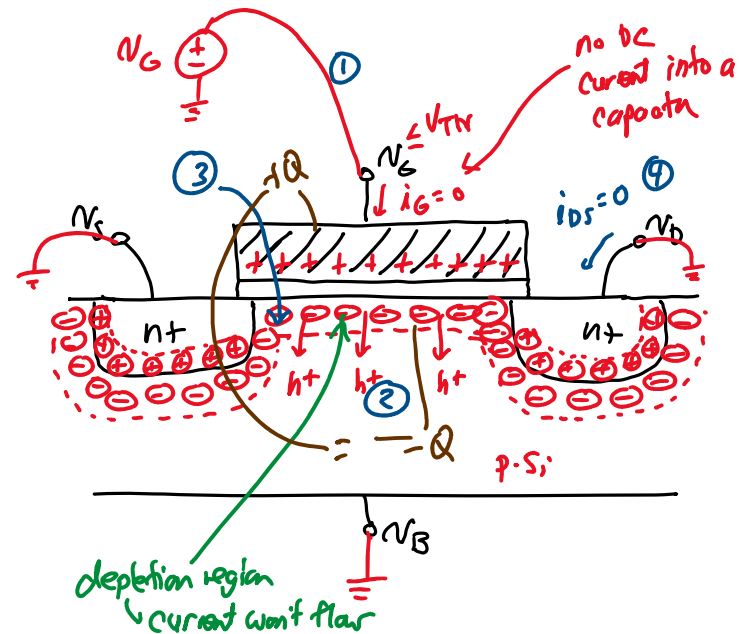 V_G
+
-
①
no DC
current into a
capacitor
< V_THN
V_G
③
+Q
i_G = 0
i_DS = 0
④
V_S
V_D
+ + + + + + + + +
n+
n+
h+ h+ h+
②
= -Q
p-Si
V_B
depletion region
↳ current won't flow